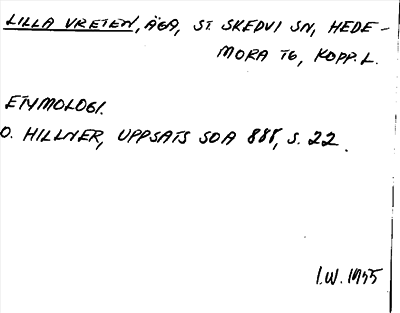 LILLA VRETEN, ÄGA, ST. SKEDVI SN, HEDE-
MORA TG, KOPP. L.
ETYMOLOGI.
O. HILLNER, UPPSATS SOA 888, S. 22.
I.W. 1955